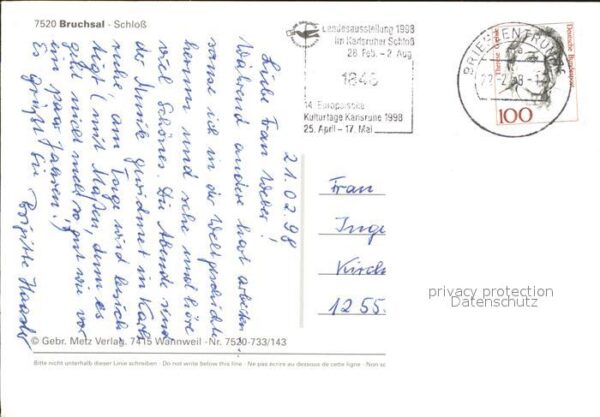 7520 Bruchsal - Schloß
Landesausstellung 1998
im Karlsruher Schloß
28. Feb. - 2. Aug
1848
14. Europäische
Kulturtage Karlsruhe 1998
25. April - 17. Mai
BRIEFZENTRUM
Deutsche Bundespost
100
21.02.98
Liebe Frau Weber!
Während andere hart arbeiten
sause ich in der Weltgeschichte
herum, und sehe und höre
viel Schönes. Die Abende sind
der Musik gewidmet in Karls
ruhe, am Tage wird besich
tigt (mit Maßen, denn es
geht nicht mehr so gut wie vor
ein paar Jahren!)
Es grüßt Sie
Brigitte
Frau
Inge
Kirch
1255
privacy protection
Datenschutz
© Gebr. Metz Verlag, 7415 Wannweil - Nr. 7520-733/143
Bitte nicht unterhalb dieser Linie schreiben - Do not write below this line - Ne pas écrire au dessous de cette ligne - Non sc